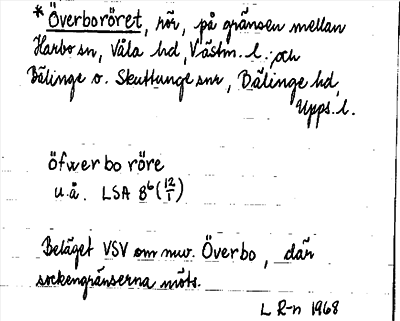 * Överboröret, rör, på gränsen mellan
Harbo sn, Våla hd, Västm. l. och
Bälinge o. Skuttunge snr, Bälinge hd,
Upps. l.
öfwer bo röre
u.å. LSA B⁶ (12/1)
Beläget VSV om nuv. Överbo, där
sockengränserna möts.
L R-n 1968